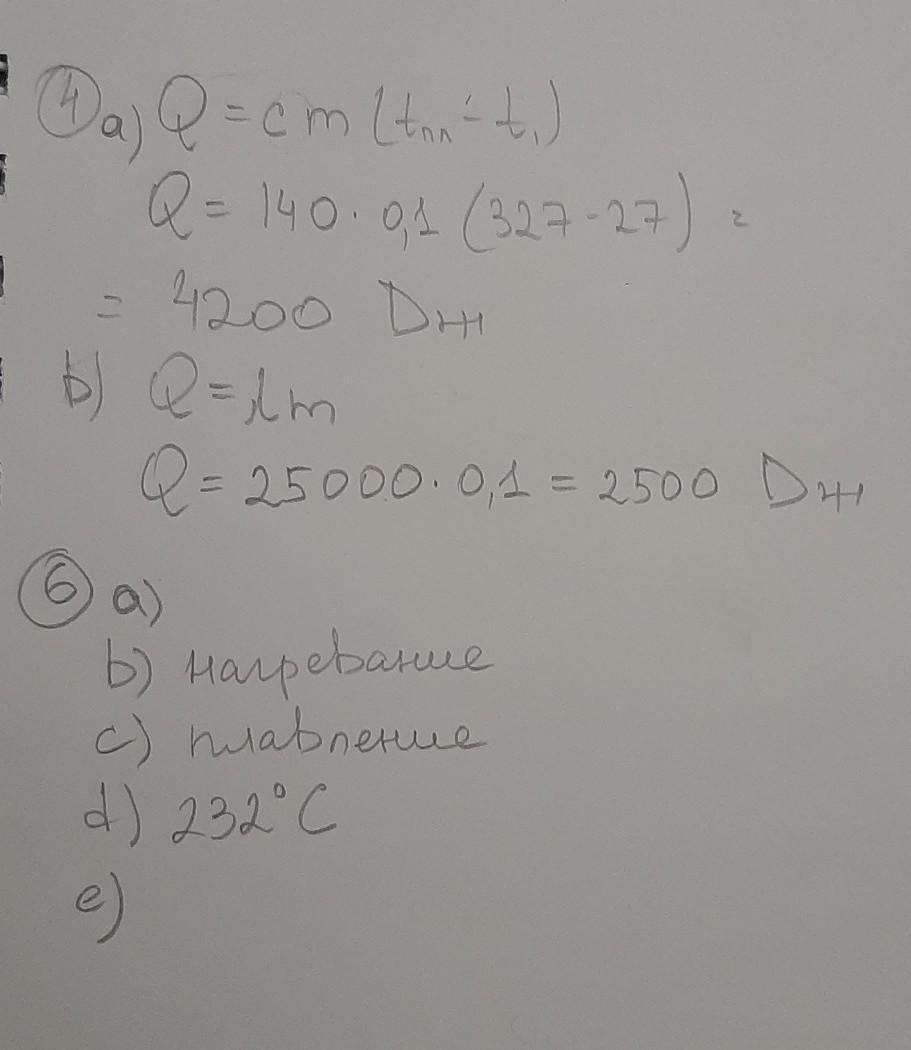 ④ a) Q = cm (tпл - t₁)
Q = 140 · 0,1 (327 - 27) =
= 4200 Dж
b) Q = λm
Q = 25000 · 0,1 = 2500 Dж
⑥ a)
b) нагревание
c) плавление
d) 232°C
e)